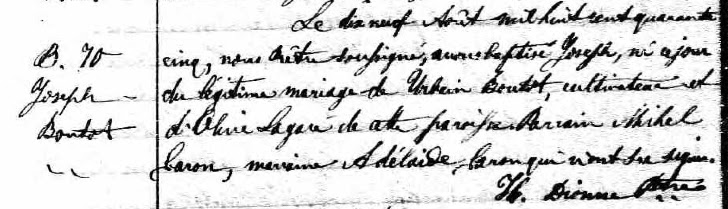 Le dix neuf Août mil huit cent quarante
B. 70 cinq, nous Prêtre soussigné, avons baptisé Joseph, né ce jour
Joseph du légitime mariage de Urbain Boutot, cultivateur et
Boutot d'Olive Lagacé de cette paroisse Parrain Michel
Caron, marraine Adélaïde Caron qui n'ont su signer.
Th. Dionne Ptre